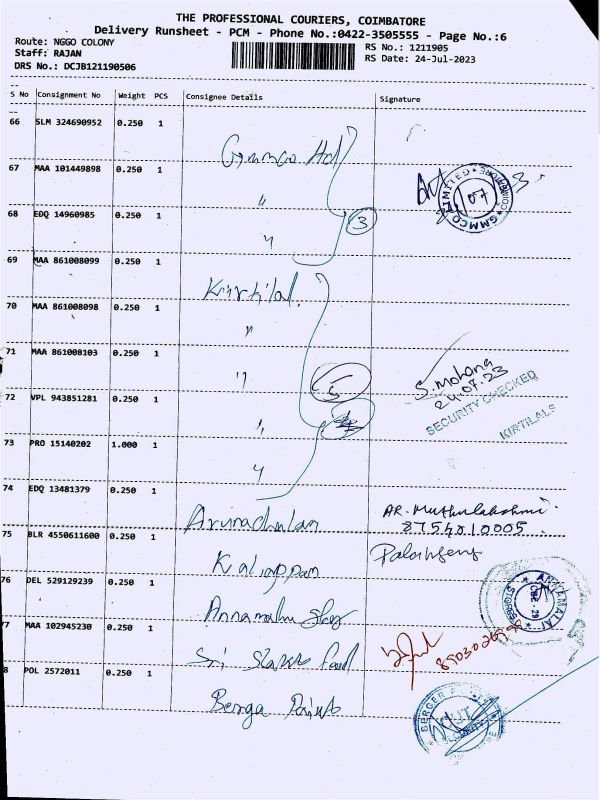 THE PROFESSIONAL COURIERS, COIMBATORE
Delivery Runsheet - PCM - Phone No.:0422-3505555 - Page No.:6
Route: NGGO COLONY
RS No.: 1211905
Staff: RAJAN
RS Date: 24-Jul-2023
DRS No.: DCJB121190506
S No Consignment No Weight PCS Consignee Details Signature
66 SLM 324690952 0.250 1
Gmmco Hal
67 MAA 101449898 0.250 1 "
LIMITED GMMCO 07
68 EDQ 14960985 0.250 1 "
3
69 MAA 861008099 0.250 1
Kirtilal
70 MAA 861008098 0.250 1 "
71 MAA 861008103 0.250 1 "
5
S. Mohana
24.07.23
SECURITY CHECKED
KIRTILALS
72 VPL 943851281 0.250 1 "
73 PRO 15140202 1.000 1 "
74 EDQ 13481379 0.250 1
Arunachalam AR. Muthulakshmi
8754010005.
75 BLR 4550611600 0.250 1
Kaliappan
76 DEL 529129239 0.250 1
Annamalai
ANNAMALAI STORES
77 MAA 102945230 0.250 1
Sri
8 POL 2572011 0.250 1
Berga Paints
BERGER